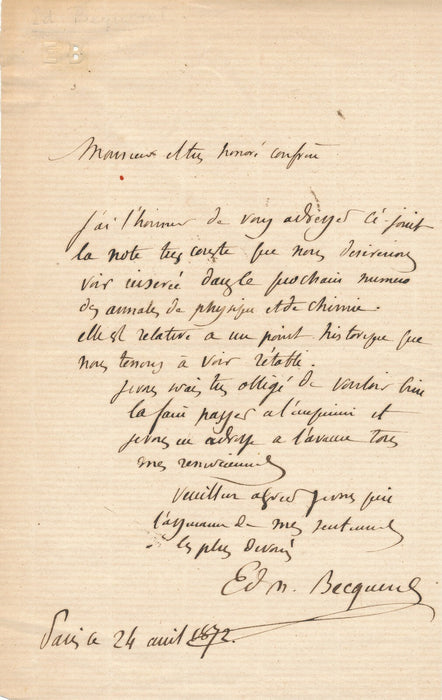 Ed. Becquerel
EB
Monsieur et très honoré confrère
J'ai l'honneur de vous adresser ci joint
la note très courte que nous desirerions
voir inserée dans le prochain numero
des annales de physique et de chimie.
elle est relative a un point historique que
nous tenons à voir rétabli.
je vous serais très obligé de vouloir bien
la faire passer a l'imprimeur et
je vous en adresse a l'avance tous
mes remerciements
Veuillez agréer je vous prie
l'assurance de mes sentiments
les plus devoués
Edm. Becquerel
Paris ce 24 avril 1872.